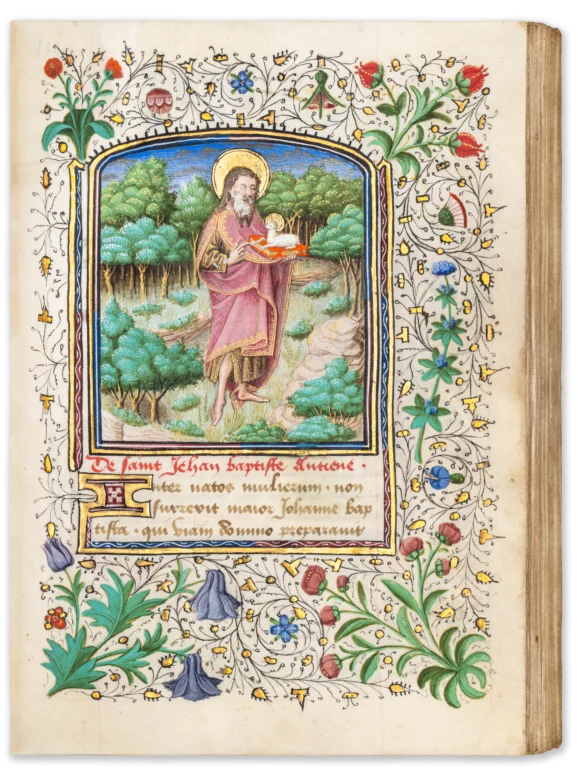 De saint Jehan baptiste Antiene.
Inter natos mulierum. non
surrexit maior Iohanne bap
tista. qui viam domino preparavit